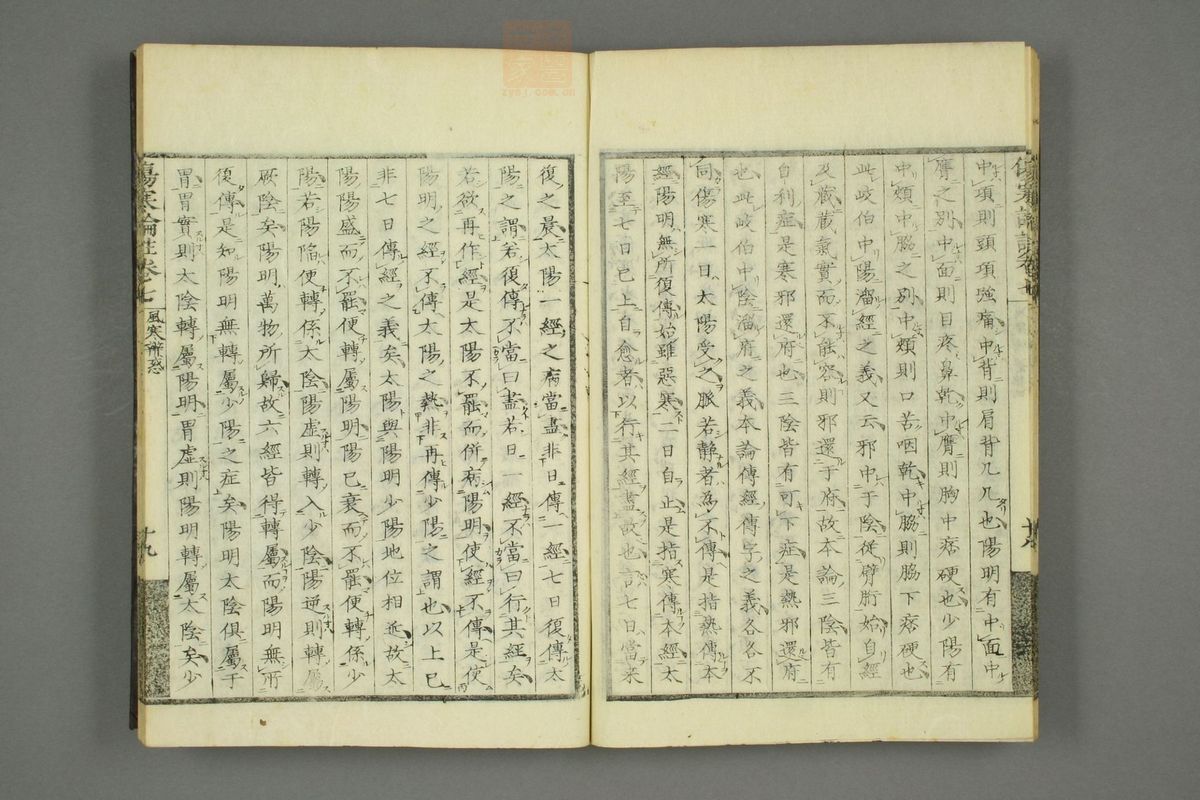 中項則頭項強痛中背則肩背几几也陽明有中面中
膺之別中面則目疼鼻乾中膺則胸中痞硬也少陽有
中頰中脇之別中頰則口苦咽乾中脇則脇下痞硬也
此岐伯中陽溜經之義又云邪中于陰從臂胻始自經
及藏藏氣實而不能容則邪還于府故本論三陰皆有
自利症是寒邪還府也三陰皆有可下症是熱邪還府
也此岐伯中陰溜府之義本論傳經傳字之義各各不
同傷寒一日太陽受之脈若静者為不傳是指熱傳本
經陽明無所復傳始雖惡寒二日自止是指寒傳本經太
陽至七日已上自愈者以行其經盡故也言七日當来
復之晨太陽一經之病當盡非日傳一經七日復傳太
陽之謂若復傳不當曰盡若日一經不當曰行其經矣
若欲再作經是太陽不罷而併病陽明使經不傳是使
陽明之經不傳太陽之熱非再傳少陽之謂也以上已
非七日傳經之義矣太陽與陽明少陽地位相近故太
陽陽盛而不罷便轉屬陽明陽已衰而不罷便轉係少
陽若陽陷便轉係太陰陽虛則轉入少陰陽逆則轉屬
厥陰矣陽明萬物所歸故六經皆得轉屬而陽明無所
復傳是知陽明無轉屬少陽之症矣陽明太陰俱屬于
胃胃實則太陰轉屬陽明胃虛則陽明轉屬太陰矣少
傷寒論註卷七
風寒辨惑
十九
zysj.com.cn